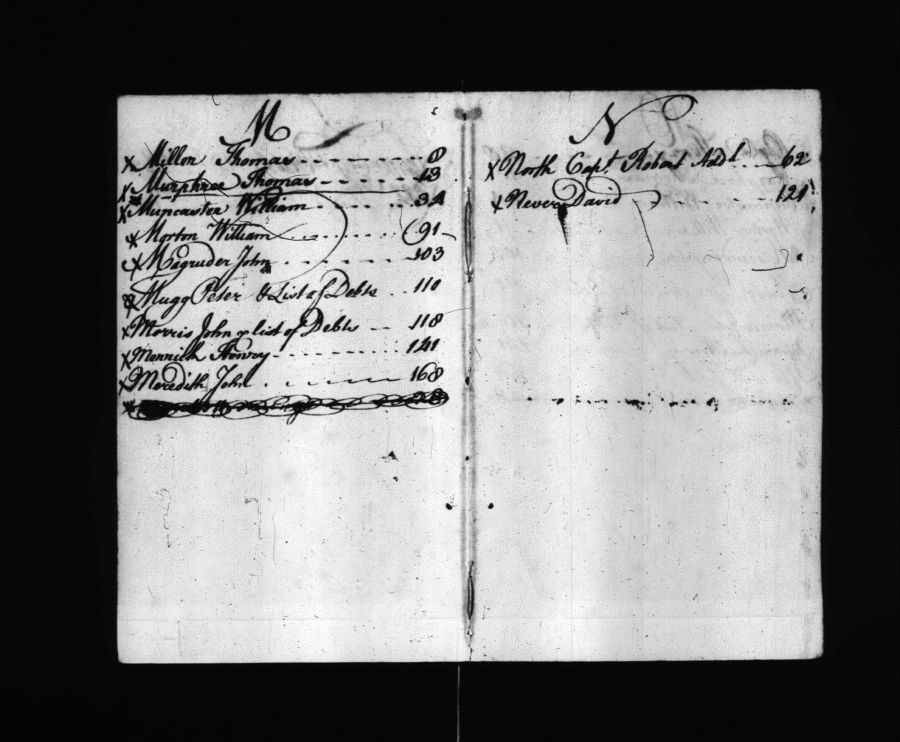 M
x Miller Thomas 8
x Murphree Thomas 13
x Muncaster William 34
x Morton William 91
x Magruder John 103
x Mugg Peter & List of Debts 110
x Morris John & list of Debts 118
x Henry 141
x Meredith John 168
N
x North Capt. Robert 62
x Never David 121